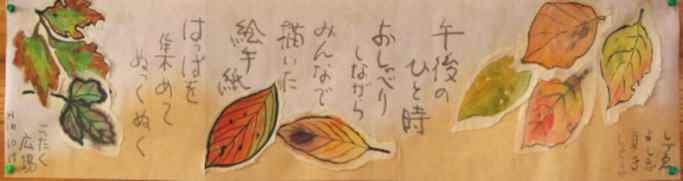 午後の
ひと時
おしゃべり
しながら
みんなで
描いた
絵手紙
はっぱを
集めて
ぬっくぬく
こたく
広場